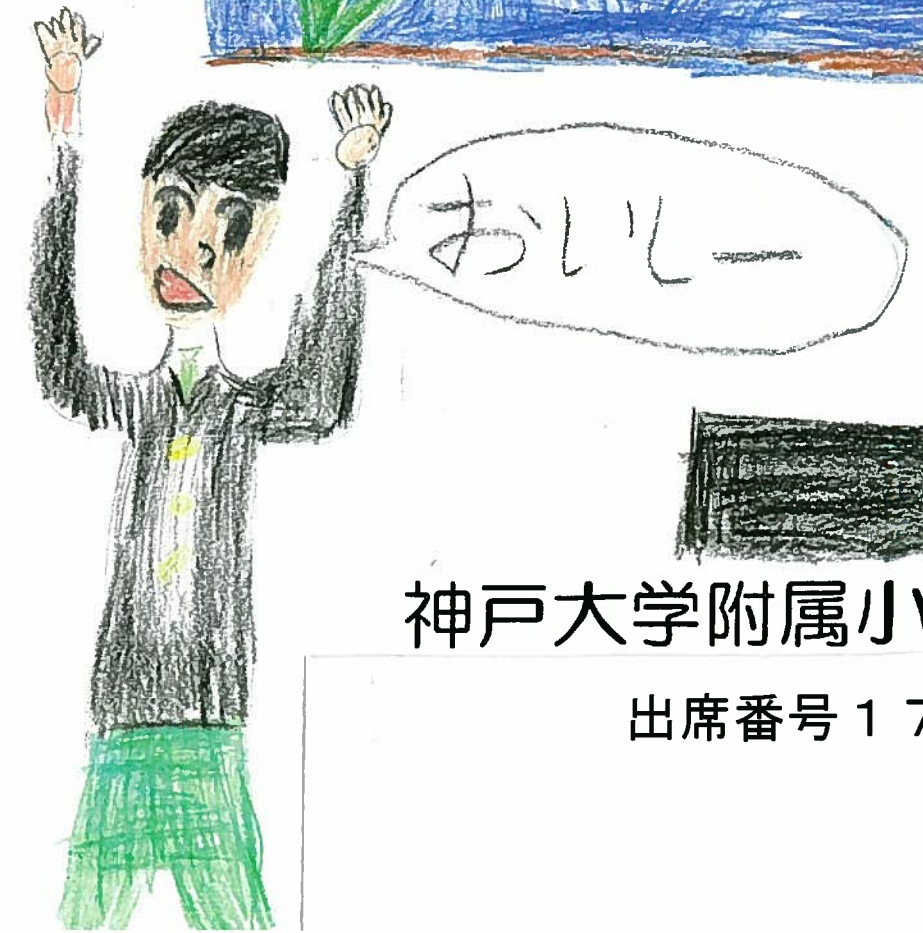 おいしー
神戸大学附属小
出席番号１７